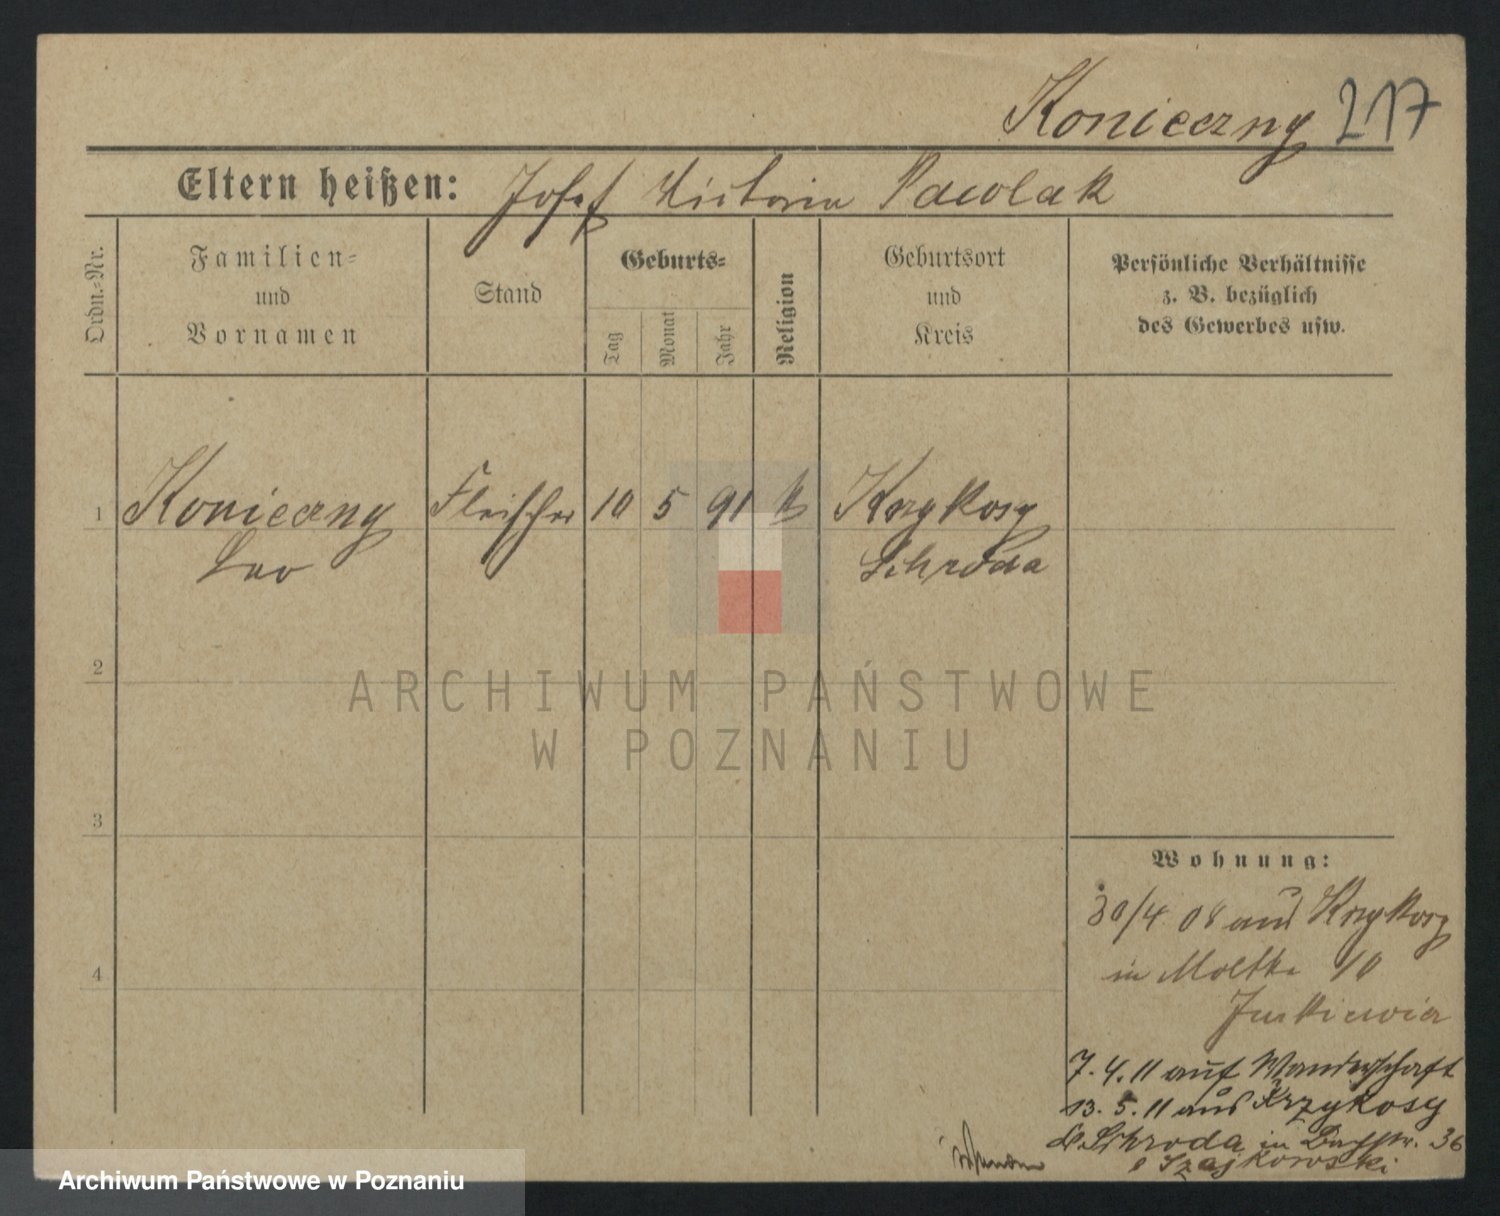 Konieczny 217
Eltern heißen: Josef Victoria Pawolak
Ordn.-Nr.
Familien-
und
Vornamen
Stand
Geburts-
Tag
Monat
Jahr
Religion
Geburtsort
und
Kreis
Persönliche Verhältnisse
z. B. bezüglich
des Gewerbes usw.
1 Konieczny Fleischer 10 5 91 k Krzykosy
Leo Schroda
2
ARCHIWUM PAŃSTWOWE
W POZNANIU
3
Wohnung:
30/4 08 aus Krzykosy
4
in Moltke 10
Juskiewicz
7. 4. 11 auf Wanderschaft
13. 5. 11 aus Krzykosy
Schroda in 36
Szajkowski
Archiwum Państwowe w Poznaniu